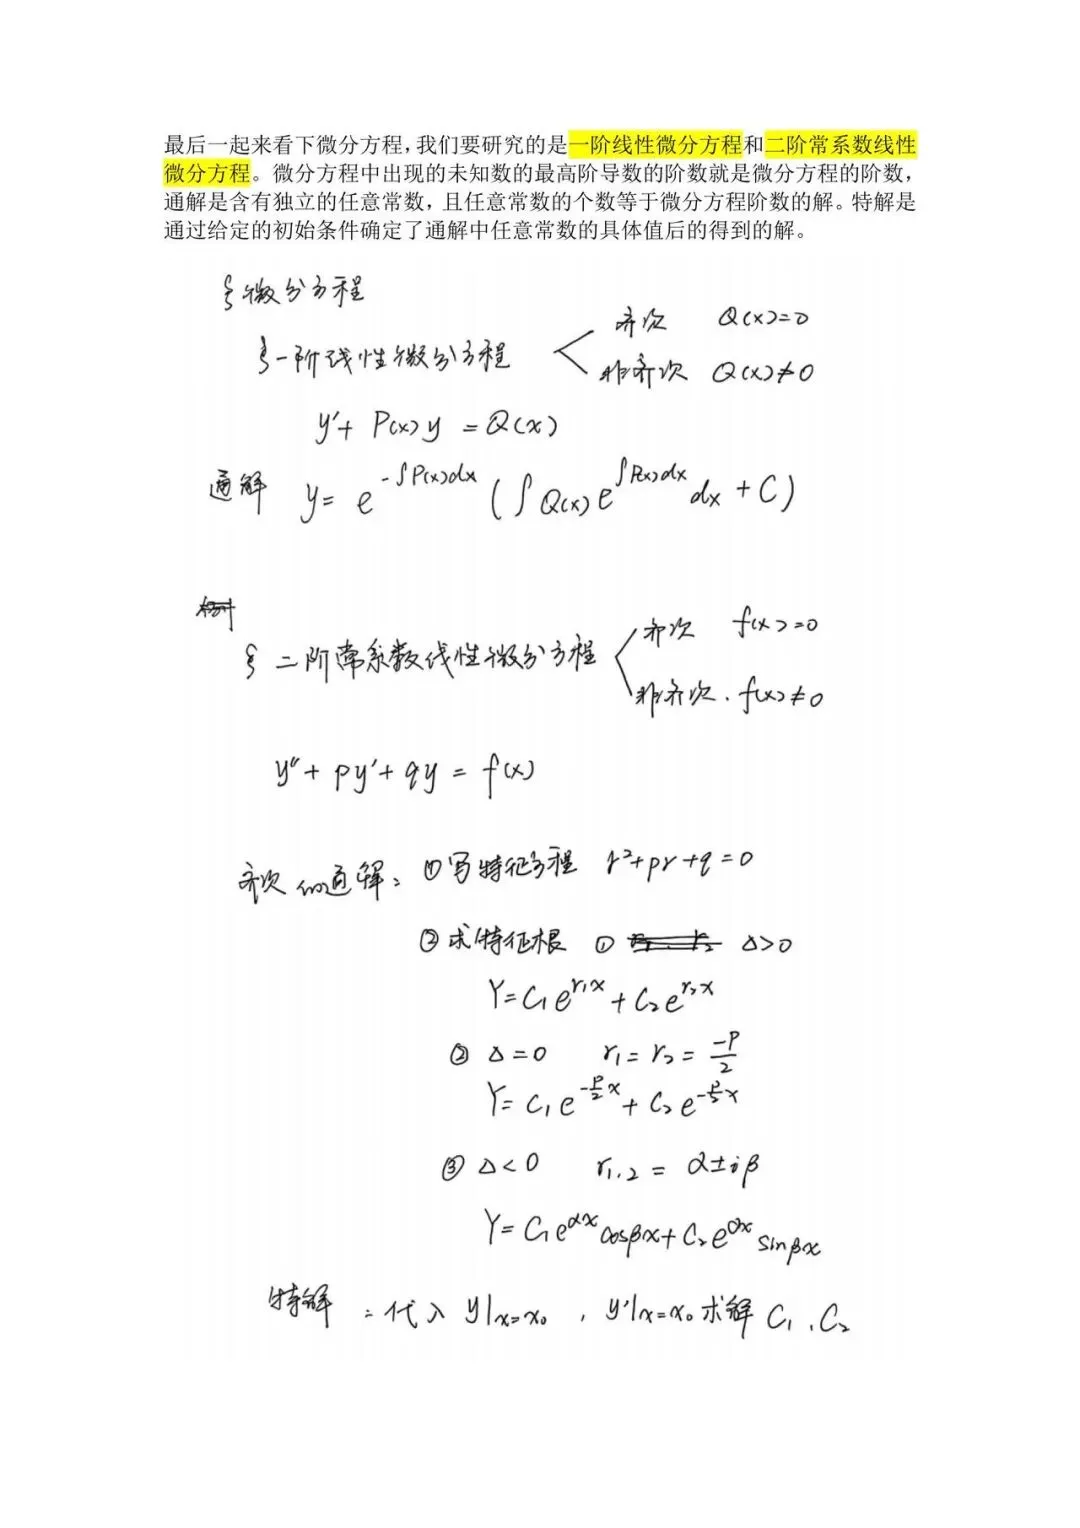 最后一起来看下微分方程，我们要研究的是一阶线性微分方程和二阶常系数线性
微分方程。微分方程中出现的未知数的最高阶导数的阶数就是微分方程的阶数，
通解是含有独立的任意常数，且任意常数的个数等于微分方程阶数的解。特解是
通过给定的初始条件确定了通解中任意常数的具体值后的得到的解。
§微分方程
齐次 Q(x)=0
§一阶线性微分方程
非齐次 Q(x)≠0
y′+ P(x)y = Q(x)
通解 y= e^{-∫P(x)dx} (∫Q(x)e^{∫P(x)dx}dx + C)
齐次 f(x)=0
§ 二阶常系数线性微分方程
非齐次. f(x)≠0
y″+ py′+ qy = f(x)
齐次的通解: ①写特征方程 r²+pr+q=0
②求特征根 ① Δ>0
Y=C₁e^{r₁x}+C₂e^{r₂x}
② Δ=0 r₁=r₂= \frac{-P}{2}
Y= C₁e^{-\frac{P}{2}x}+ C₂e^{-\frac{P}{2}x}
③ Δ<0 r₁.₂ = α±iβ
Y= C₁e^{αx}cosβx+ C₂e^{αx}sinβx
特解 : 代入 y|x=x₀ , y′|x=x₀ 求解 C₁ , C₂